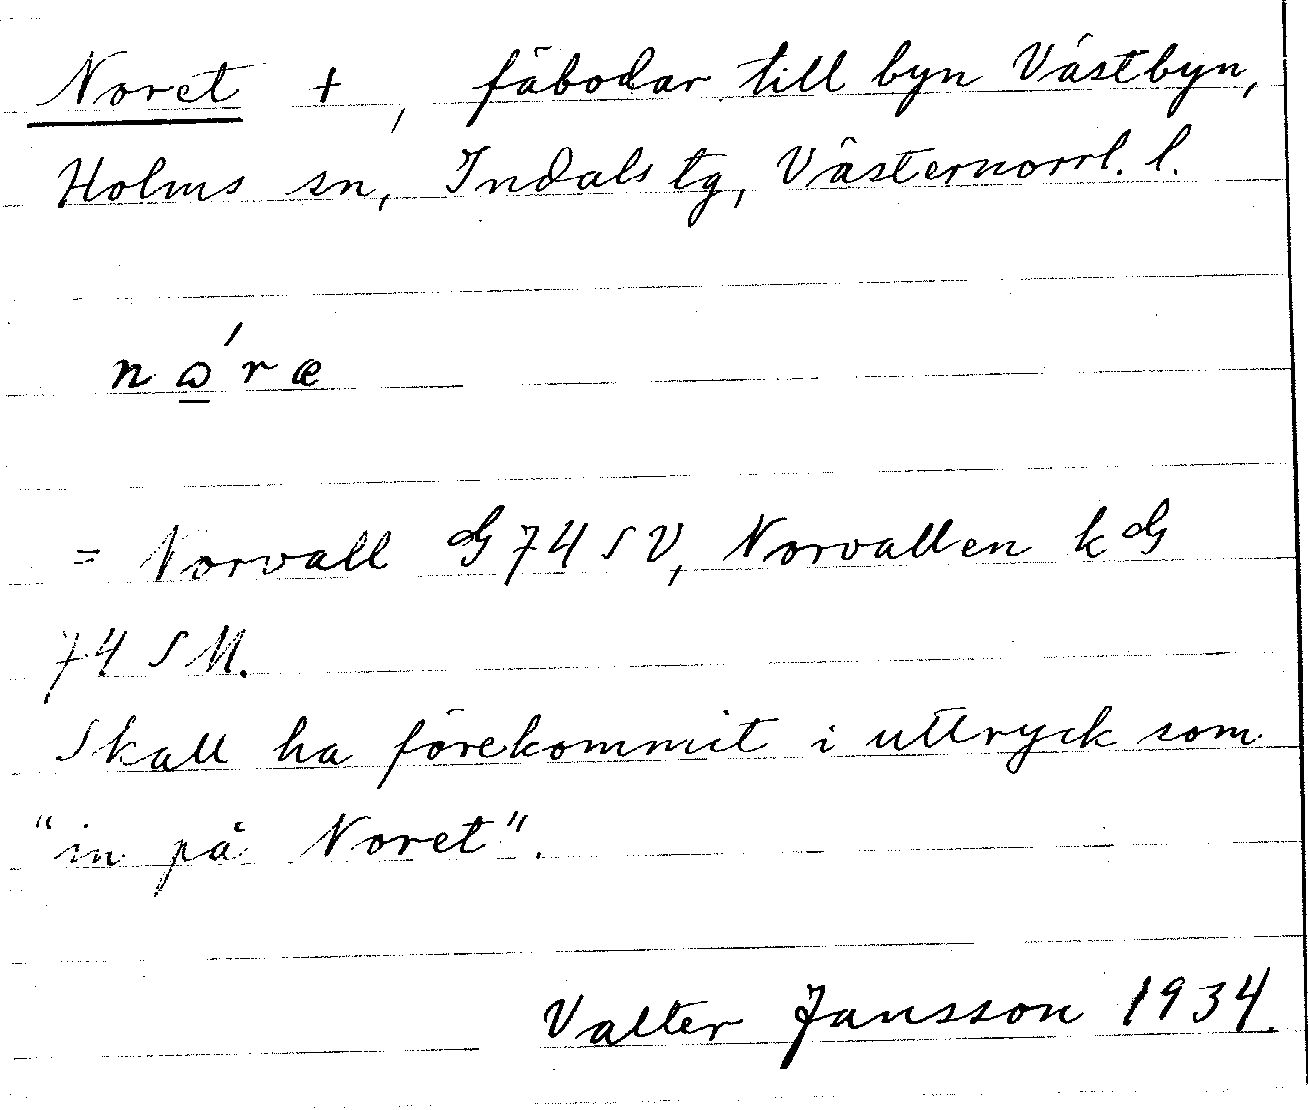 Noret +, fäbodar till byn Västbyn,
Holms sn, Indals tg, Västernorrl. l.
nɷ̲́ræ
= Norvall G 74 SV, Norvallen k G
74 S M.
Skall ha förekommit i uttryck som
"in på Noret".
Valter Jansson 1934.